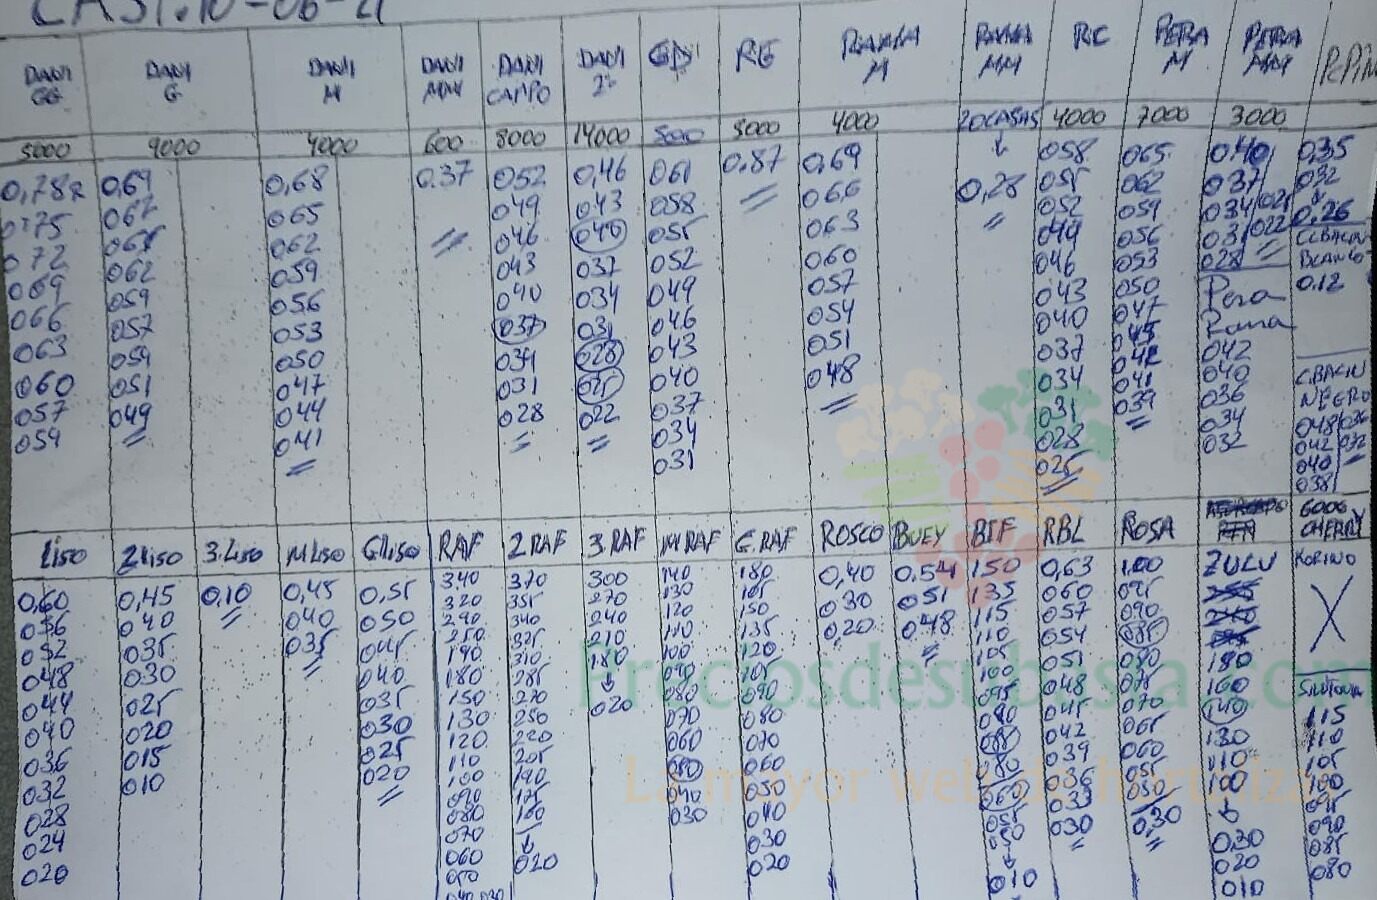 CAST. 10-06-21
DANI GG DANI G DANI M DANI MM DANI CAMPO DANI 2ª GDI RG RAMA M RAMA MM RC PERA M PERA MM PEPIN
5000 9000 4000 600 8000 14000 5000 3000 4000 20 CAJAS 4000 7000 3000
0,78 0,69 0,68 0.37 052 0,46 061 0,87 0,69 0,28 058 065 0.40 0,35
075 065 049 043 058 066 055 062 037 032
072 062 046 040 055 063 052 059 034 025 0,26
069 062 059 043 037 052 060 049 056 031 022 C.BACIN
066 059 056 040 034 049 057 046 053 028 BLANCO
063 057 053 037 031 046 054 043 050 Pera 0.12
060 054 050 034 028 043 051 040 047 Rama
057 051 047 031 025 040 048 037 045 042
054 049 044 028 022 037 034 042 040 C.BACIN
041 034 031 041 036 NEGRO
031 028 039 034 048 036
025 032 042 032
040
038
1 LISO 2 LISO 3 LISO M LISO G LISO RAF 2 RAF 3 RAF M RAF G.RAF ROSCO BUEY BIF RBL ROSA 600G CHERRY
0,60 0,45 0,10 0,45 0,55 340 370 300 140 180 0,40 0.54 150 0,63 100 ZULU KORINO
056 040 040 050 320 355 270 130 165 030 051 135 060 095
052 035 035 045 290 340 240 120 150 0,20 048 115 057 090
048 030 040 250 325 210 110 135 110 054 085
044 025 035 190 310 180 100 120 105 051 080 180
040 020 030 180 285 020 090 105 100 048 075 160 SINTONIA
036 015 025 150 270 080 090 095 045 070 140 115
032 010 020 130 250 070 080 090 042 065 130 110
028 120 220 060 070 085 039 060 110 105
024 110 205 050 060 080 036 055 100 100
020 100 190 040 050 060 033 050 095
090 175 030 040 055 030 030 0,30 090
080 160 030 050 020 085
070 020 020 010 010 080
060
050
040 030
Preciosdesubasta.com
La mayor web de hortalizas